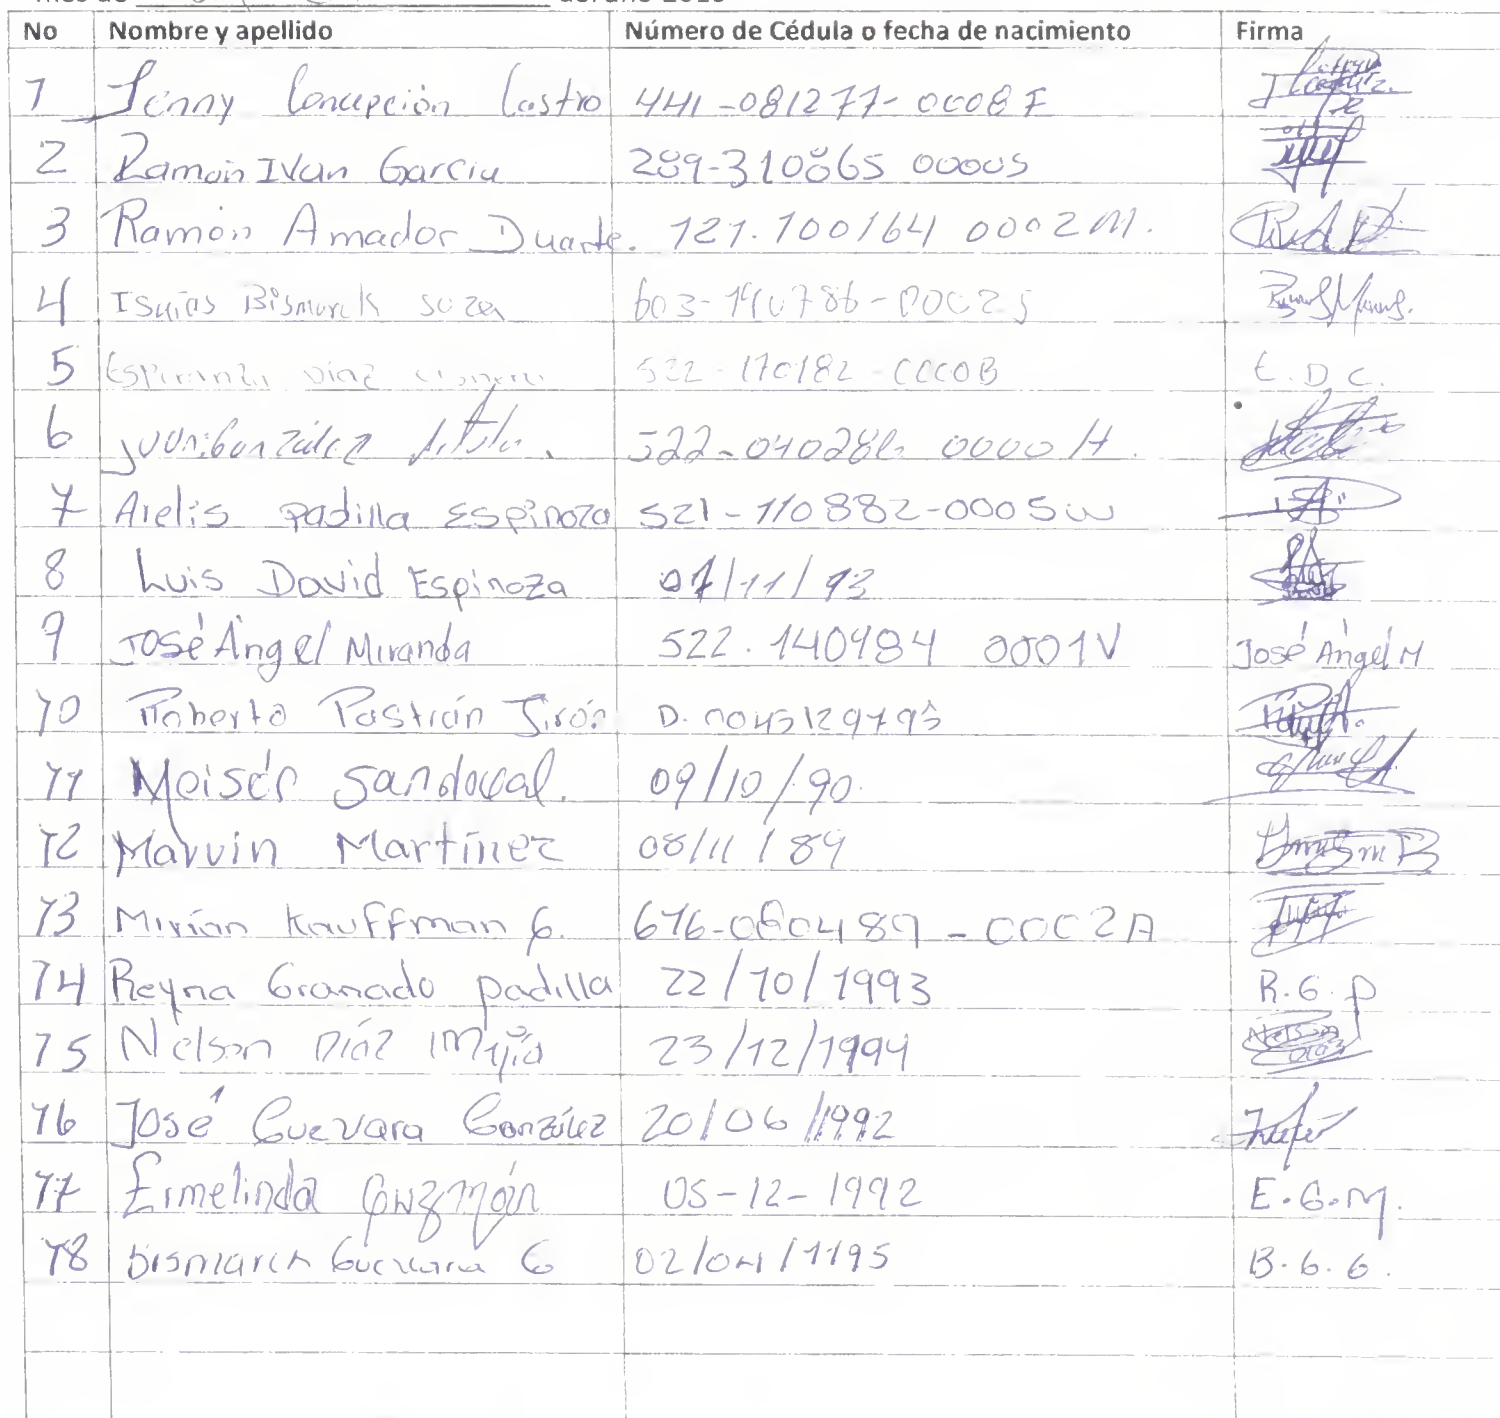 No Nombre y apellido Número de Cédula o fecha de nacimiento Firma
1 Jenny Concepción Castro 441-081277-0008F
2 Ramón Ivan Garcia 289-310865 0000S
3 Ramón Amador Duarte. 121.100164 0002M.
4 Isaías Bismarck soza 603-190786-0002S
5 Esperanza Diaz 522-170182-0000B E.D.C.
6 Juan González 522-040286 0000H.
7 Arelis padilla Espinoza 521-110882-0005w
8 Luis David Espinoza 07/11/93
9 José Ángel Miranda 522.140984 0001V José Ángel M
10 Roberto Pastrán Jirón D.
11 Moisés Sandoval. 09/10/90.
12 Marvin Martínez 08/11/89
13 Mirían Kauffman G. 616-080489-0002A
14 Reyna Granado padilla 22/10/1993 R.G.P
15 Nelson Díaz Mejía 23/12/1994 Nelson Díaz
16 José Guevara González 20/06/1992
17 Ermelinda Guzmán 05-12-1992 E.G.M.
18 Bismarck Guevara G 02/04/1195 B.G.G.